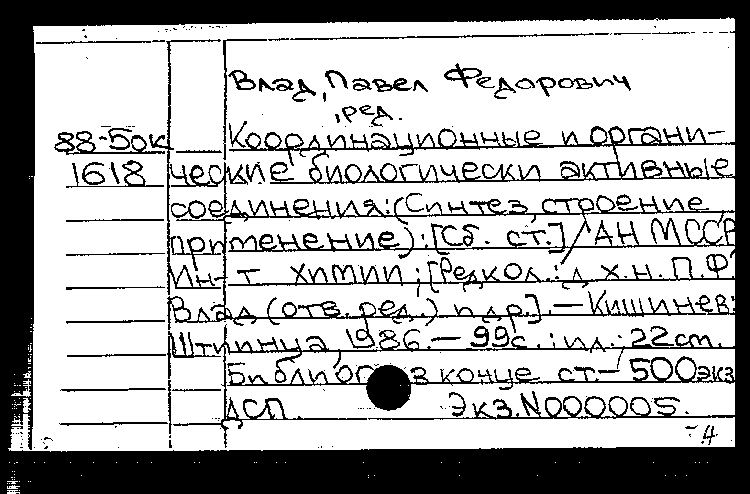 Влад, Павел Федорович
, ред.
88-5ок Координационные и органи-
1618 ческие биологически активные
соединения: (Синтез, строение,
применение): [Сб. ст.] / АН МССР,
Ин-т химии; [Редкол.: д.х.н. П.Ф.
Влад (отв. ред.) и др.]. — Кишинев:
Штиинца, 1986. — 99с.: ил.; 22см.
Библиог. в конце ст. — 500экз
ДСП. Экз. N000005.